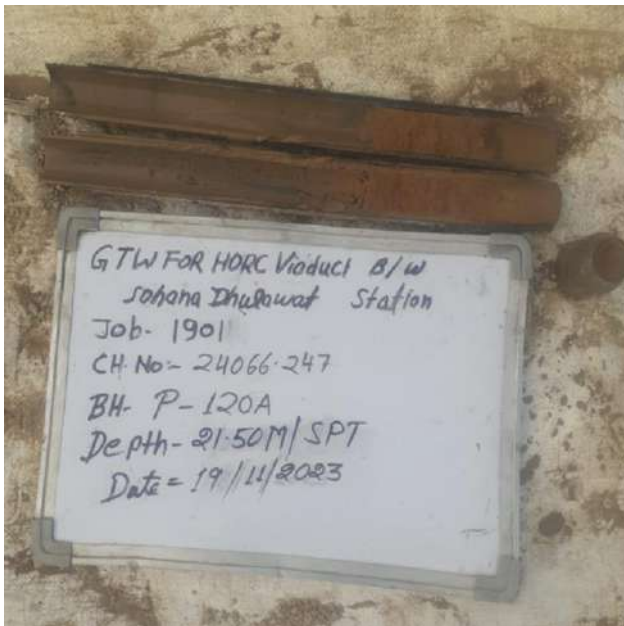 GTW FOR HORC Viaduct B/W
Sohana Dhulawat Station
Job- 1901
CH. No:- 24066.247
BH- P-120A
Depth- 21.50M/SPT
Date = 19/11/2023